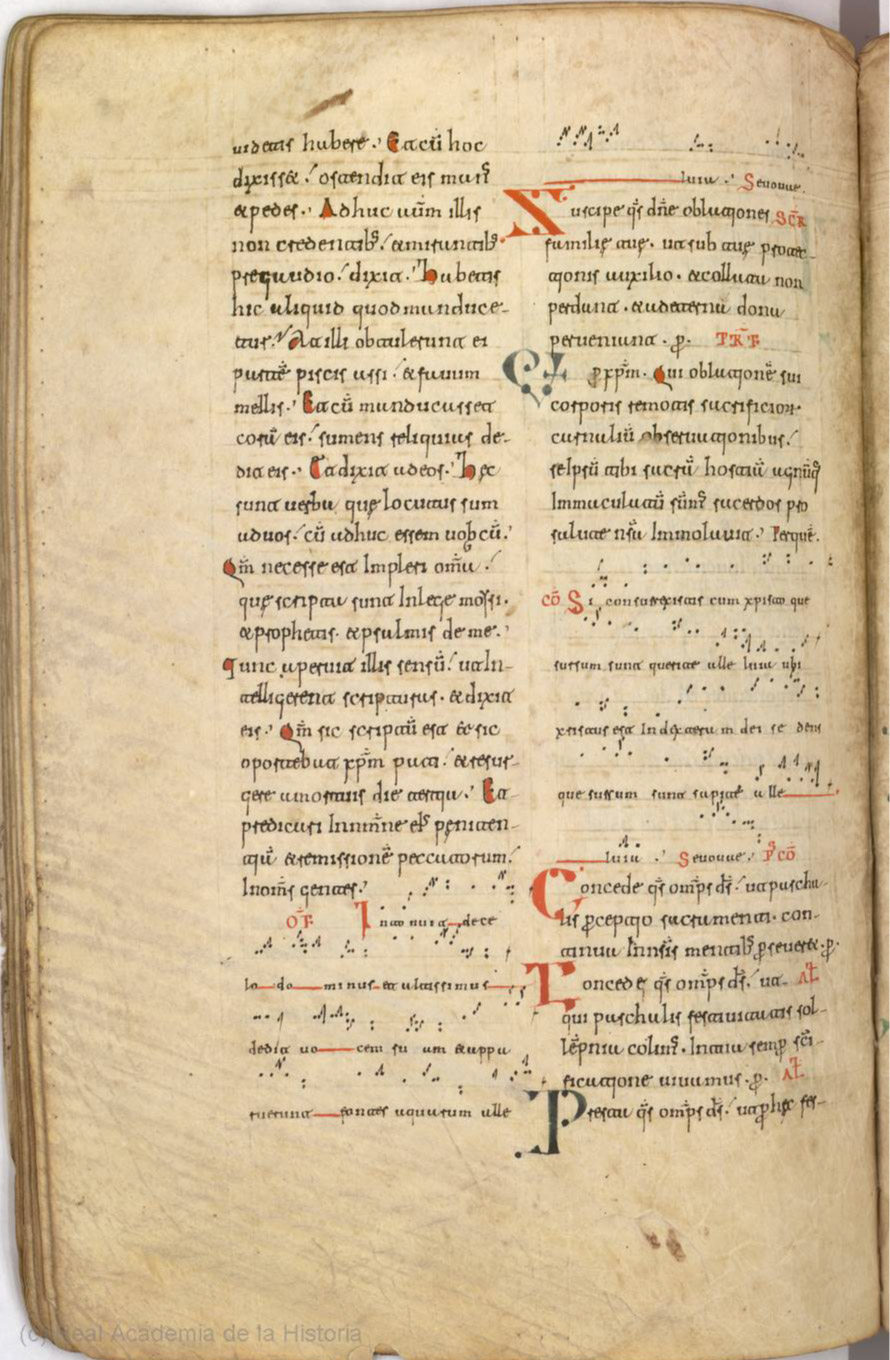 uidetis habere. Et cū hoc
dixisset. ostendit eis man⁹
et pedes. Adhuc autē illis
non credentib; et mirantib;
pre gaudio. dixit. Habetis
hic aliquid quod manduce-
tur. At illi obtulerunt ei
partē piscis assi. et fauum
mellis. Et cū manducasset
corā eis. sumens reliquias de-
dit eis. Et dixit ad eos. Hęc
sunt uerba quę locutus sum
ad uos. cū adhuc essem uobcū.
Qm̄ necesse est Impleri om̄a.
quę scripta sunt In lege moysi.
et prophetis. et psalmis de me.
Tunc aperuit illis sensū. ut In-
telligerent scripturas. et dixit
eis. Qm̄ sic scriptū est et sic
oportebat xp̄m pati. et resur-
gere a mortuis die tertia. Et
predicari In nomine eī pęniten-
tiā et remissionē peccatorum.
In om̄s gentes.
OF̄ Intonuit de ce
lo do minus et altissimus
dedit uo cem su am et appa
ruerunt fontes aquarum alle
luia. Seuouae.
Suscipe q̄s dn̄e oblationes SCR̄
familię tuę. ut sub tuę protec-
tionis auxilio. et collata non
perdant. et ad eterna dona
perueniant. p̄.
Et p xp̄m. Qui oblationē sui
corporis remotis sacrificior
carnaliū obseruationibus.
seipsū tibi sacrā hostiā agnūq
Immaculatū sūm⁹ sacerdos pro
salute nr̄a Immolauit. Per quē.
CŌ Si consurrexistis cum xpisto que
sursum sunt querite alle luia ubi
xristus est In dextera m dei se dens
que sursum sunt sapite alle
luia. Seuouae. P̄ CŌ
Concede q̄s omp̄s ds̄. ut pascha-
lis p̄ceptio sacramenti. con-
tinua In nr̄is mentib; p̄seueret. p̄.
Concede q̄s omp̄s ds̄. ut AL̄
qui paschalis festiuitatis sol-
lēpnia colim⁹. In tua semp̄ sc̄i-
ficatione uiuamus. p̄. AL̄
Presta q̄s omp̄s ds̄. ut p̄ hęc fes-